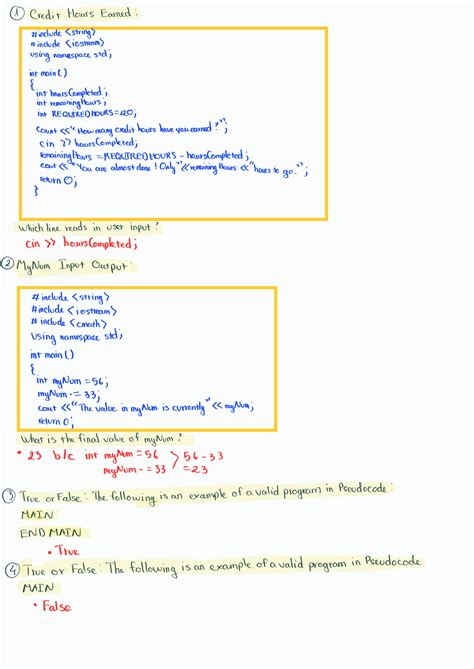 ① Credit Hours Earned :
#include <string>
#include <iostream>
using namespace std;
int main()
{
int hoursCompleted ;
int remainingHours ;
int REQUIREDHOURS=120;
cout <<"How many credit hours have you earned ?";
cin >> hoursCompleted;
remainingHours = REQUIREDHOURS - hoursCompleted;
cout <<"You are almost done ! Only "<<remainingHours <<"hours to go.";
return 0;
}
Which line reads in user input ?
cin >> hoursCompleted;
② MyNum Input Output :
# include <string>
#include <iostream>
# include <cmath>
Using namespace std;
int main()
{
int myNum = 56;
myNum -= 33;
cout <<"The value in myNum is currently" << myNum;
return 0;
What is the final value of myNum ?
• 23 b/c int myNum = 56 > 56 - 33
myNum - = 33 = 23
③ True or False : The following is an example of a valid program in Pseudocode :
MAIN
END MAIN
• True
④ True or False : The following is an example of a valid program in Pseudocode
MAIN
• False